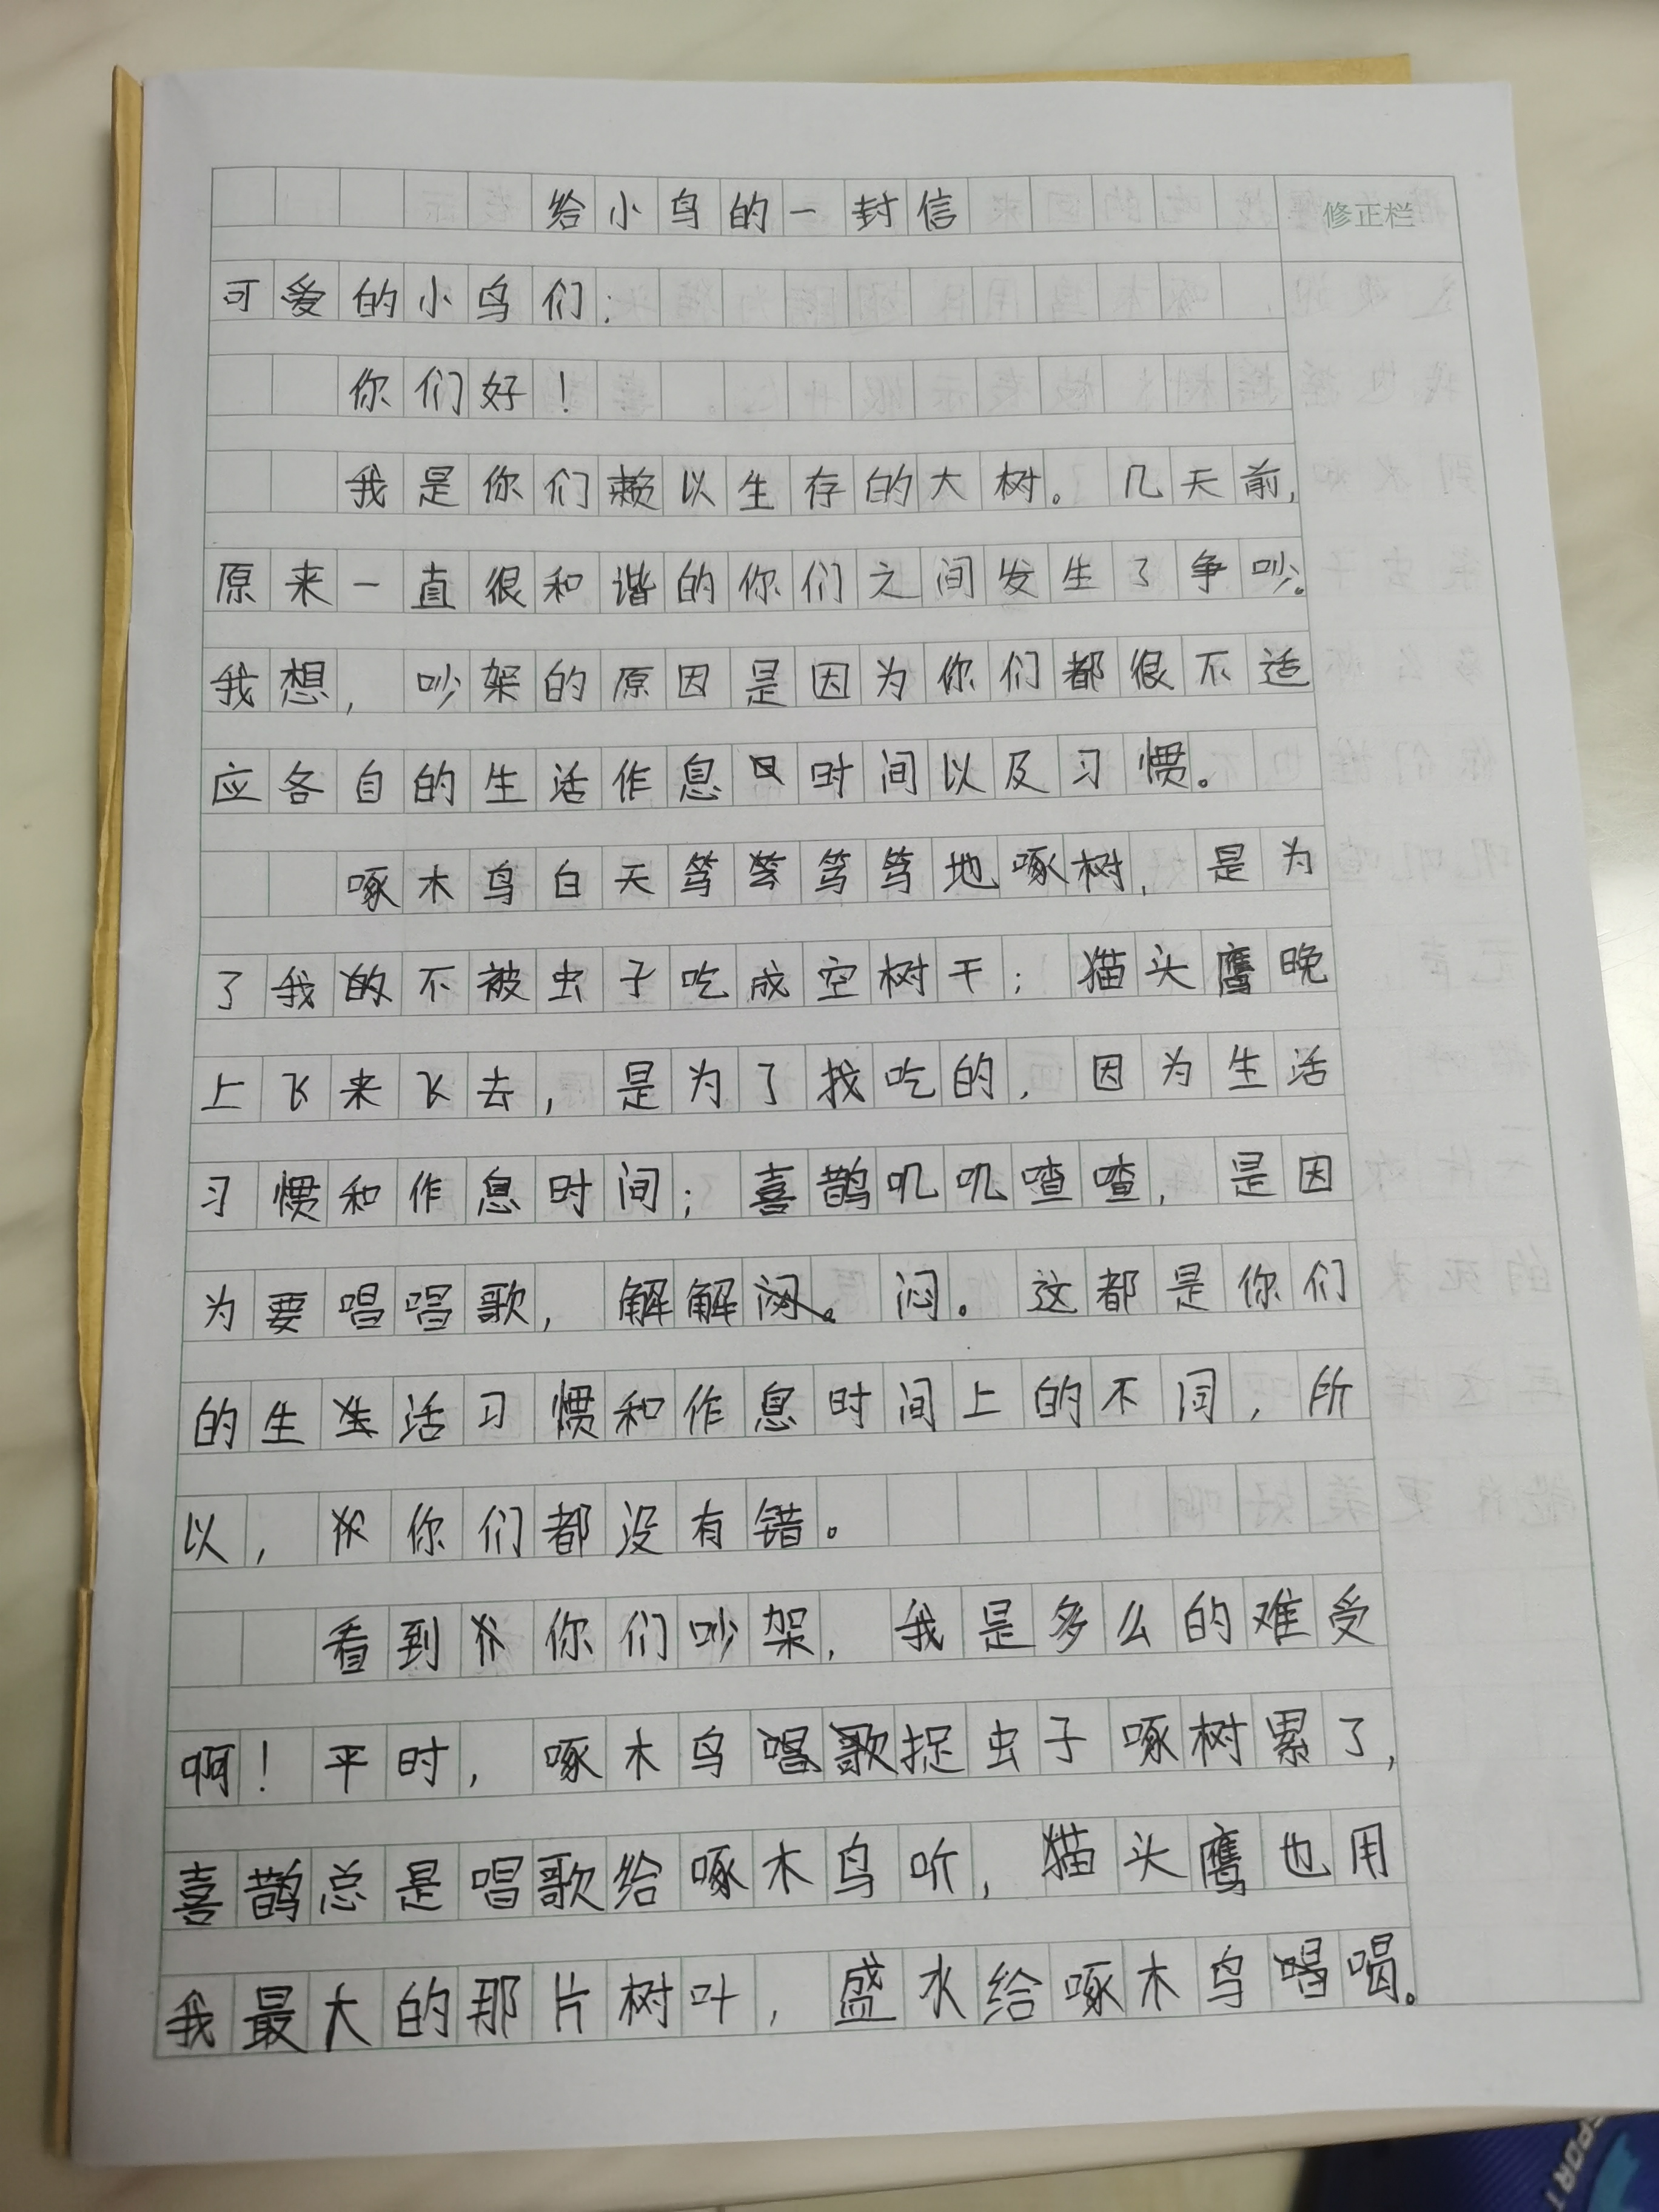 给小鸟的一封信
修正栏
可爱的小鸟们：
你们好！
我是你们赖以生存的大树。几天前，
原来一直很和谐的你们之间发生了争吵。
我想，吵架的原因是因为你们都很不适
应各自的生活作息时间以及习惯。
啄木鸟白天笃笃笃地啄树，是为
了我不被虫子吃成空树干；猫头鹰晚
上飞来飞去，是为了找吃的，因为生活
习惯和作息时间；喜鹊叽叽喳喳，是因
为要唱唱歌，解解闷。这都是你们
的生活习惯和作息时间上的不同，所
以，你们都没有错。
看到你们吵架，我是多么的难受
啊！平时，啄木鸟捉虫子啄树累了，
喜鹊总是唱歌给啄木鸟听，猫头鹰也用
我最大的那片树叶，盛水给啄木鸟喝喝。
PORT